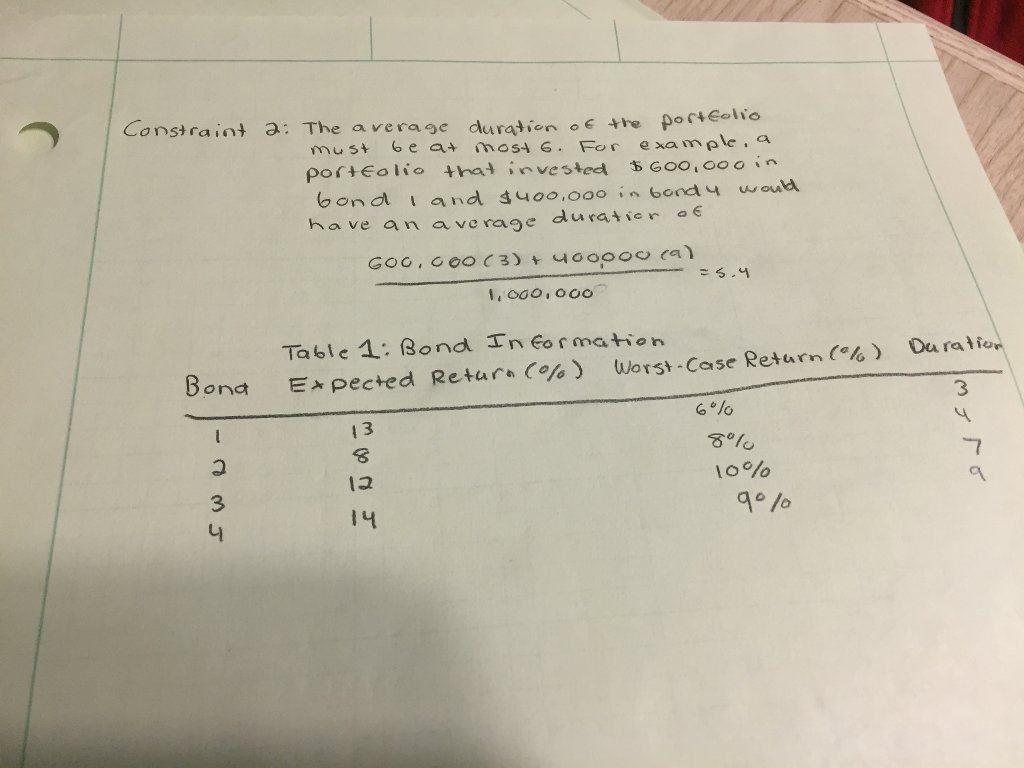 Constraint 2: The average duration of the portfolio
must be at most 6. For example, a
portfolio that invested $600,000 in
bond 1 and $400,000 in bond 4 would
have an average duration of
600,000 (3) + 400,000 (9)
= 5.4
1,000,000
Table 1: Bond Information
Bond Expected Return (%) Worst-Case Return (%) Duration
1 13 6% 3
2 8 8% 4
3 12 10% 7
4 14 9% 9